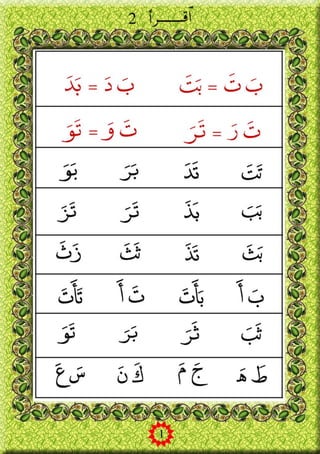 أقـــرأ 2
بَ تَ = بَتَ بَ دَ = بَدَ
تَ رَ = تَرَ تَ وَ = تَوَ
تَتَ تَدَ بَرَ بَوَ
بَبَ بَذَ تَرَ تَزَ
بَثَ تَذَ ثَثَ زَثَ
بَ أَ بَأَتَ تَ أَ تَأَتَ
ثَبَ ثَرَ بَرَ تَوَ
طَ هَ جَ مَ كَ نَ سَ عَ
١